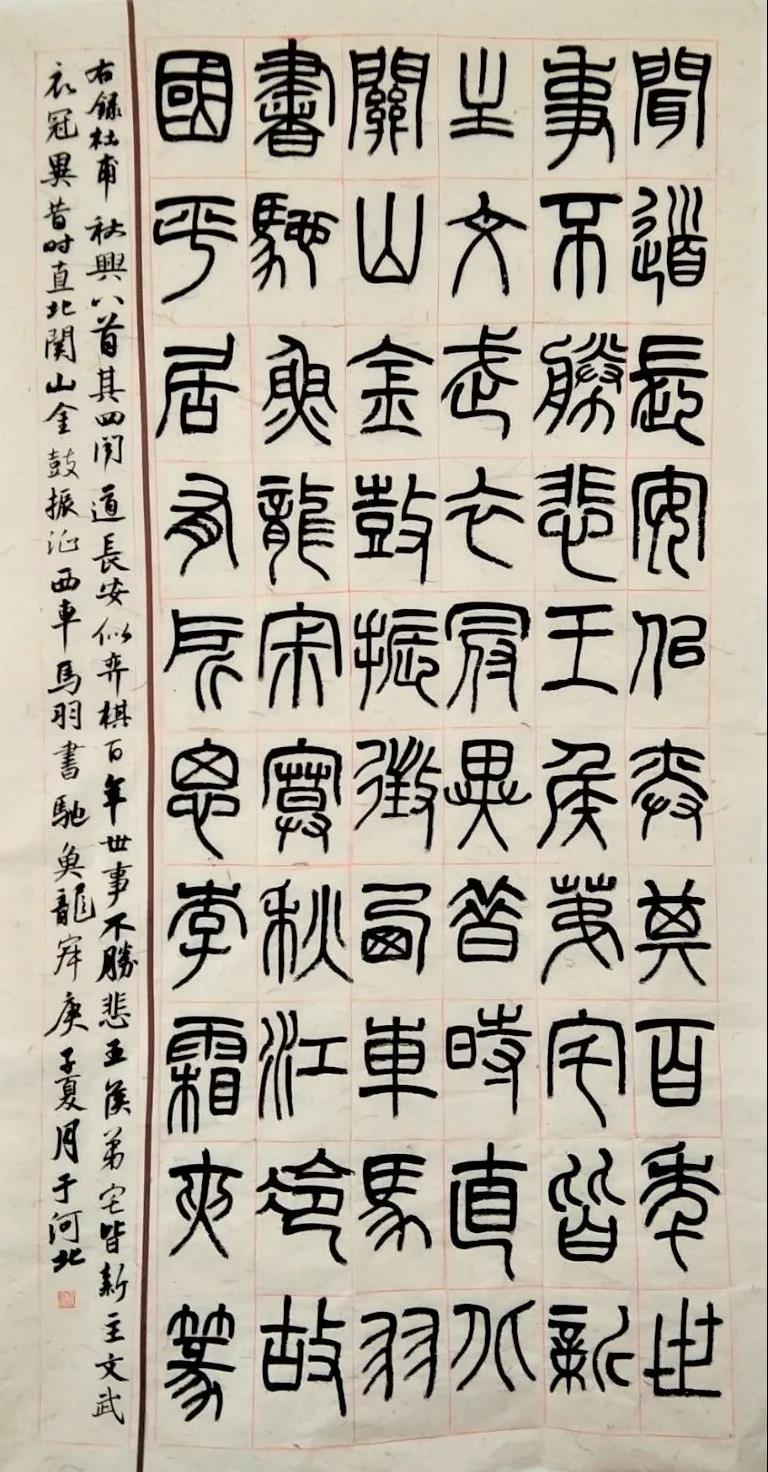 聞道長安似弈棋百年世
事不勝悲王侯第宅皆新
主文武衣冠異昔時直北
關山金鼓振徵西車馬羽
書馳魚龍寂寞秋江冷故
國平居有所思李霜爽篆
右錄杜甫秋興八首其四闻道長安似弈棋百年世事不勝悲王侯弟宅皆新主文武
衣冠異昔時直北関山金鼓振征西車馬羽書馳魚龍寂庚子夏月于河北